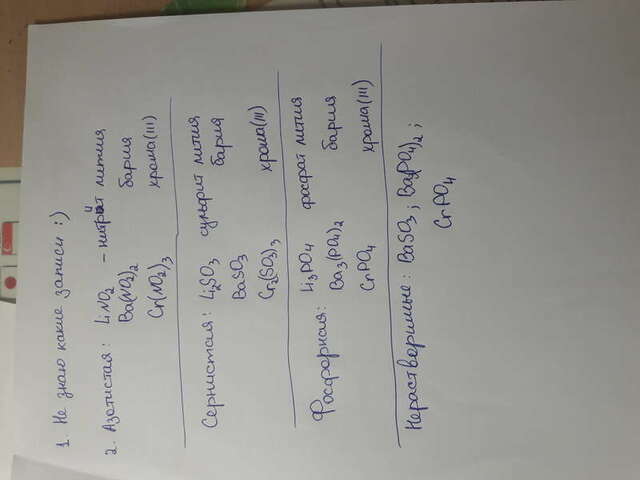 1. Не знаю какие записи :)
2. Азотистая: LiNO₂ – нитрит лития
Ba(NO₂)₂ бария
Cr(NO₂)₃ хрома(III)
Сернистая: Li₂SO₃ сульфит лития
BaSO₃ бария
Cr₂(SO₃)₃ хрома(III)
Фосфорная: Li₃PO₄ фосфат лития
Ba₃(PO₄)₂ бария
CrPO₄ хрома(III)
Нерастворимые: BaSO₃; Ba₃(PO₄)₂;
CrPO₄